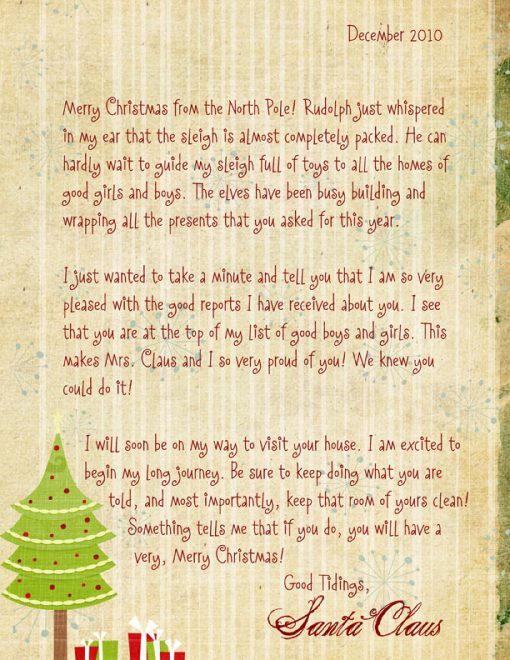 December 2010
Merry Christmas from the North Pole! Rudolph just whispered
in my ear that the sleigh is almost completely packed. He can
hardly wait to guide my sleigh full of toys to all the homes of
good girls and boys. The elves have been busy building and
wrapping all the presents that you asked for this year.
I just wanted to take a minute and tell you that I am so very
pleased with the good reports I have received about you. I see
that you are at the top of my list of good boys and girls. This
makes Mrs. Claus and I so very proud of you! We knew you
could do it!
I will soon be on my way to visit your house. I am excited to
begin my long journey. Be sure to keep doing what you are
told, and most importantly, keep that room of yours clean!
Something tells me that if you do, you will have a
very, Merry Christmas!
Good Tidings,
Santa Claus